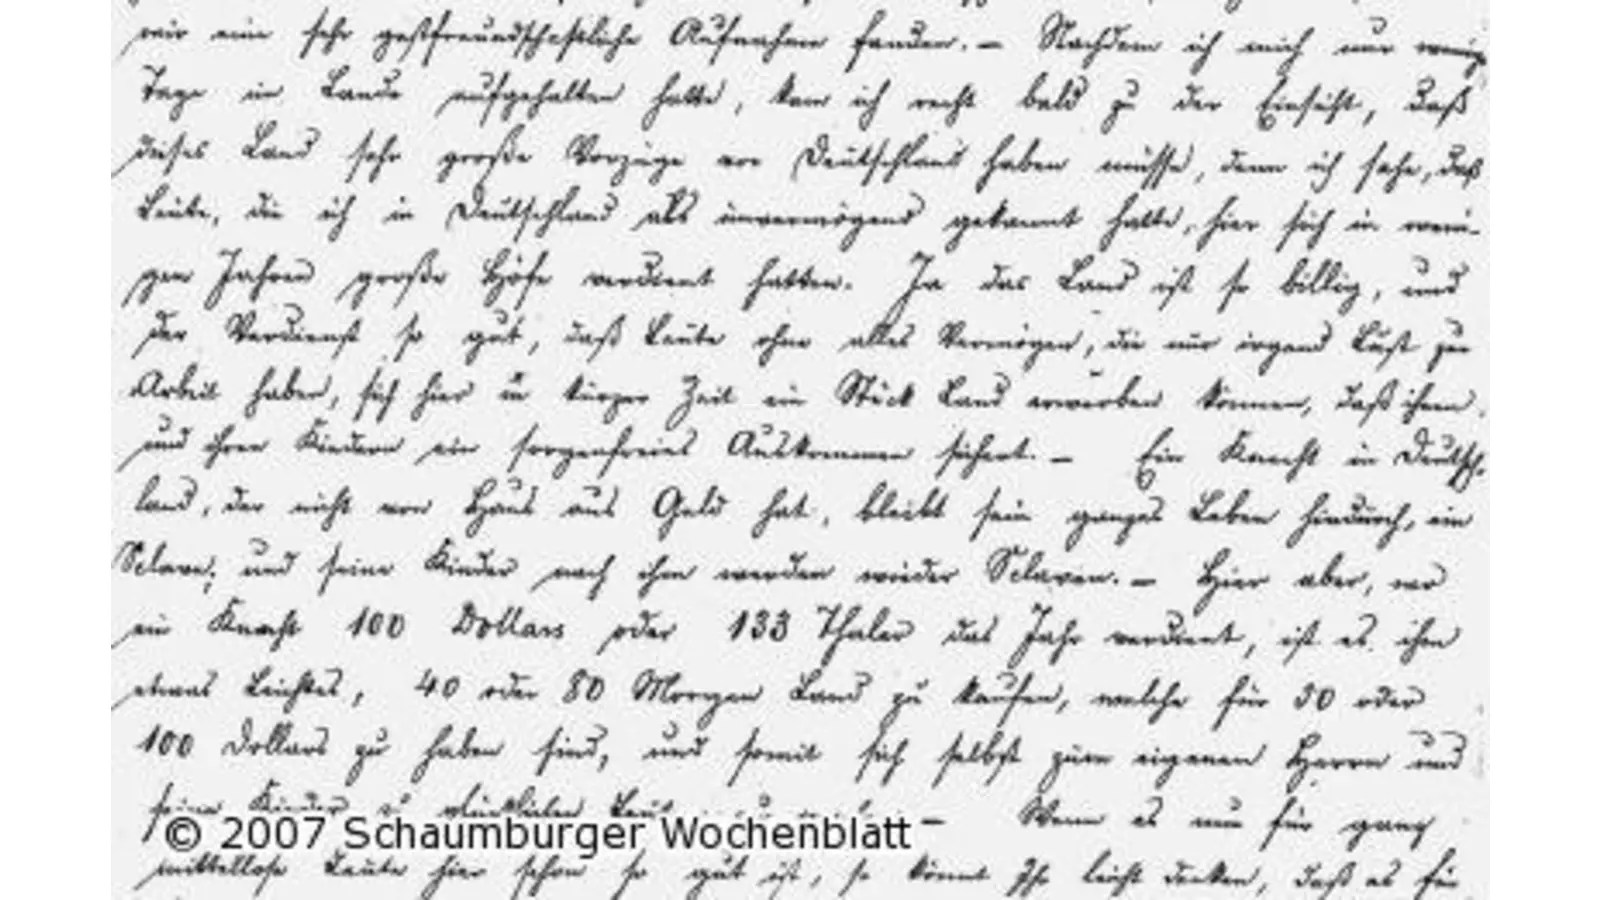 wir eine sehr gastfreundschaftliche Aufnahme fanden. – Nachdem ich mich nur wenige
Tage im Lande aufgehalten hatte, kam ich recht bald zu der Einsicht, daß
dieses Land sehr große Vorzüge vor Deutschland haben müsse, denn ich sahe, daß
Leute, die ich in Deutschland als unvermögend gekannt hatte, hier sich in weni-
gen Jahren große Höfe verdient hatten. Ja das Land ist so billig, und
der Verdienst so gut, daß Leute ohne alles Vermögen, die nur irgend Lust zur
Arbeit haben, sich hier in kurzer Zeit ein Stück Land erwerben können, daß ihnen
und ihren Kindern ein sorgenfreies Auskommen sichert. – Ein Knecht in Deutsch-
land, der nicht von Haus aus Geld hat, bleibt sein ganzes Leben hindurch, ein
Sclave, und seine Kinder nach ihm werden wieder Sclaven. – Hier aber, wo
ein Knecht 100 Dollars oder 133 Thaler das Jahr verdient, ist es ihm
etwas Leichtes, 40 oder 80 Morgen Land zu kaufen, welche für 50 oder
100 Dollars zu haben sind, und somit sich selbst zum eigenen Herrn und
seine Kinder zu glücklichen – Wenn es nun für ganz
© 2007 Schaumburger Wochenblatt
mittellose Leute hier schon so gut ist, so könnt Ihr leicht denken, daß es für